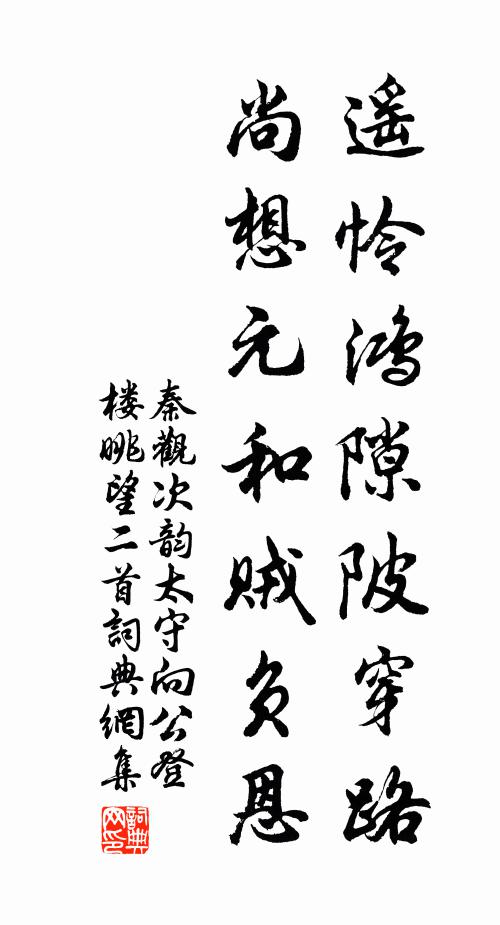 遥怜鸿隙陂穿路
尚想元和贼负恩
秦觀次韵太守向公登
楼眺望二首詞典網集
詞典网印